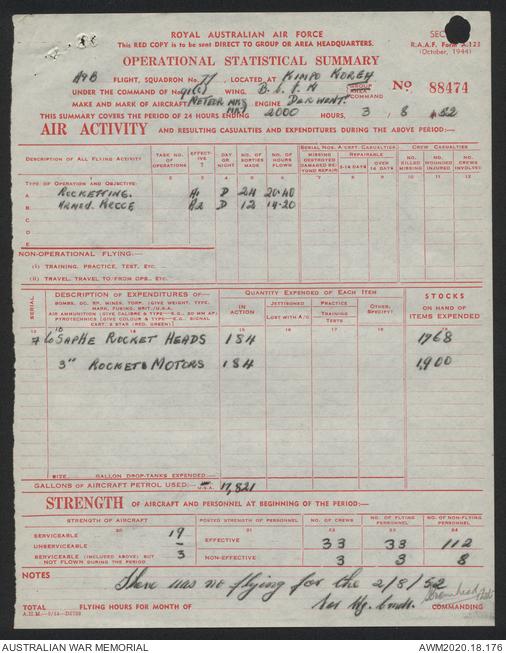 ROYAL AUSTRALIAN AIR FORCE
This RED COPY is to be sent DIRECT TO GROUP OR AREA HEADQUARTERS.
R.A.A.F. Form A.121
(October, 1944)
OPERATIONAL STATISTICAL SUMMARY
A&B FLIGHT, SQUADRON No. 77, LOCATED AT KIMPO KOREA
UNDER THE COMMAND OF No. 91(C) WING, GROUP AREA COMMAND No. 88474
MAKE AND MARK OF AIRCRAFT METEOR MK8 MK7 ENGINE DERWENT.
THIS SUMMARY COVERS THE PERIOD OF 24 HOURS ENDING 2000 HOURS, 3 / 8 / 52
AIR ACTIVITY AND RESULTING CASUALTIES AND EXPENDITURES DURING THE ABOVE PERIOD:—
DESCRIPTION OF ALL FLYING ACTIVITY TASK NO. OF OPERATIONS EFFECT-IVE ? DAY OR NIGHT NO. OF SORTIES MADE NO. OF HOURS FLOWN SERIAL NOS. A'CRFT. CASUALTIES CREW CASUALTIES
MISSING DESTROYED DAMAGED BE-YOND REPAIR REPAIRABLE 2-14 DAYS OVER 14 DAYS NO. KILLED MISSING NO. WOUNDED INJURED NO. CREWS INVOLVED
1 2 3 4 5 6 7 8 9 10 11 12
TYPE OF OPERATION AND OBJECTIVE:
A ROCKETING. A1 D 24 20·40
B ARMED. RECCE A2 D 12 14·20
C
D
E
NON-OPERATIONAL FLYING:—
(i) TRAINING, PRACTICE, TEST, ETC.
(ii) TRAVEL, TRAVEL TO/FROM OPS., ETC.
SERIAL DESCRIPTION OF EXPENDITURES OF— QUANTITY EXPENDED OF EACH ITEM STOCKS
BOMBS, DC. SP. MINES, TORP. (GIVE WEIGHT, TYPE, MARK, FUSING, BRIT./U.S.A.
AIR AMMUNITION (GIVE CALIBRE & TYPE—E.G., 20 MM AP)
PYROTECHNICS (GIVE COLOUR & TYPE—E.G., SIGNAL CART. 2 STAR (RED, GREEN)
IN ACTION JETTISONED LOST WITH A/C PRACTICE TRAINING TESTS OTHER. SPECIFY! ON HAND OF ITEMS EXPENDED
13 14 15 16 17 18
60 lb SAPHE ROCKET HEADS 184 1768
3" ROCKET MOTORS 184 1,900
SIZE GALLON DROP-TANKS EXPENDED—
GALLONS OF AIRCRAFT PETROL USED:— U.S.A. 17,821
STRENGTH OF AIRCRAFT AND PERSONNEL AT BEGINNING OF THE PERIOD:—
STRENGTH OF AIRCRAFT POSTED STRENGTH OF PERSONNEL NO. OF CREWS NO. OF FLYING PERSONNEL NO. OF NON-FLYING PERSONNEL
20 21 22 23 24
SERVICEABLE 19 EFFECTIVE 33 33 112
UNSERVICEABLE —
SERVICEABLE (INCLUDED ABOVE) BUT NOT FLOWN DURING THE PERIOD 3 NON-EFFECTIVE 3 3 8
NOTES There was no flying for the 2/8/52
TOTAL FLYING HOURS FOR MONTH OF COMMANDING
AUSTRALIAN WAR MEMORIAL AWM2020.18.176